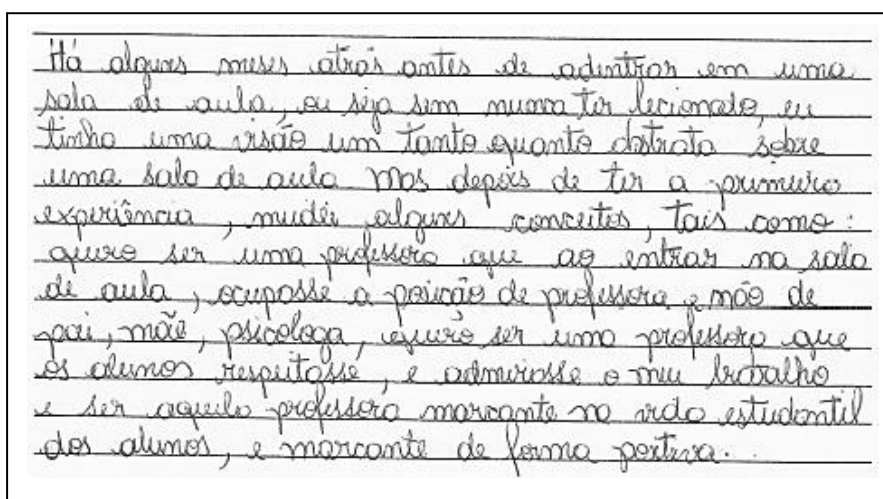 Há alguns meses atrás antes de adentrar em uma
sala de aula, ou seja sem nunca ter lecionado, eu
tinha uma visão um tanto quanto abstrata sobre
uma sala de aula Mas depois de ter a primeira
experiência, mudei alguns conceitos, tais como:
quero ser uma professora que ao entrar na sala
de aula, ocupasse a posição de professora e não de
pai, mãe, psicologa, quero ser uma professora que
os alunos respeitasse, e admirasse o meu trabalho
e ser aquela professora marcante na vida estudantil
dos alunos, e marcante de forma positiva.